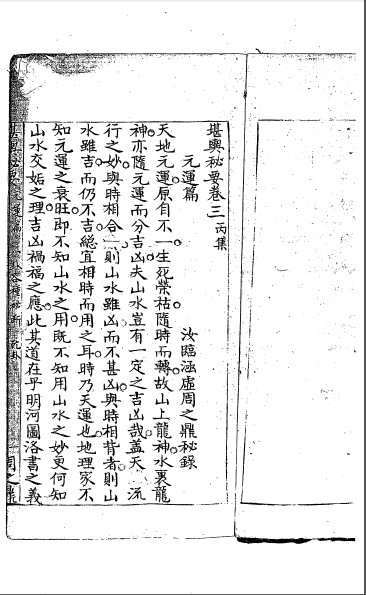 堪輿秘要卷三 丙集
元運篇
汝臨涵虛周之鼎秘錄
天地元運原自不一生死榮枯隨時而轉故山上龍神水裏龍
神亦隨元運而分吉凶夫山水豈有一定之吉凶哉蓋天 流
行之妙與時相合 則山水雖凶而不甚凶與時相背者則山
水雖吉而仍不吉總宜相時而用之耳時乃天運也地理家不
知元運之衰旺即不知山水之用既不知用山水之妙更何知
山水交姤之理吉凶禍福之應此其道在乎明河圖洛書之義
周之鼎